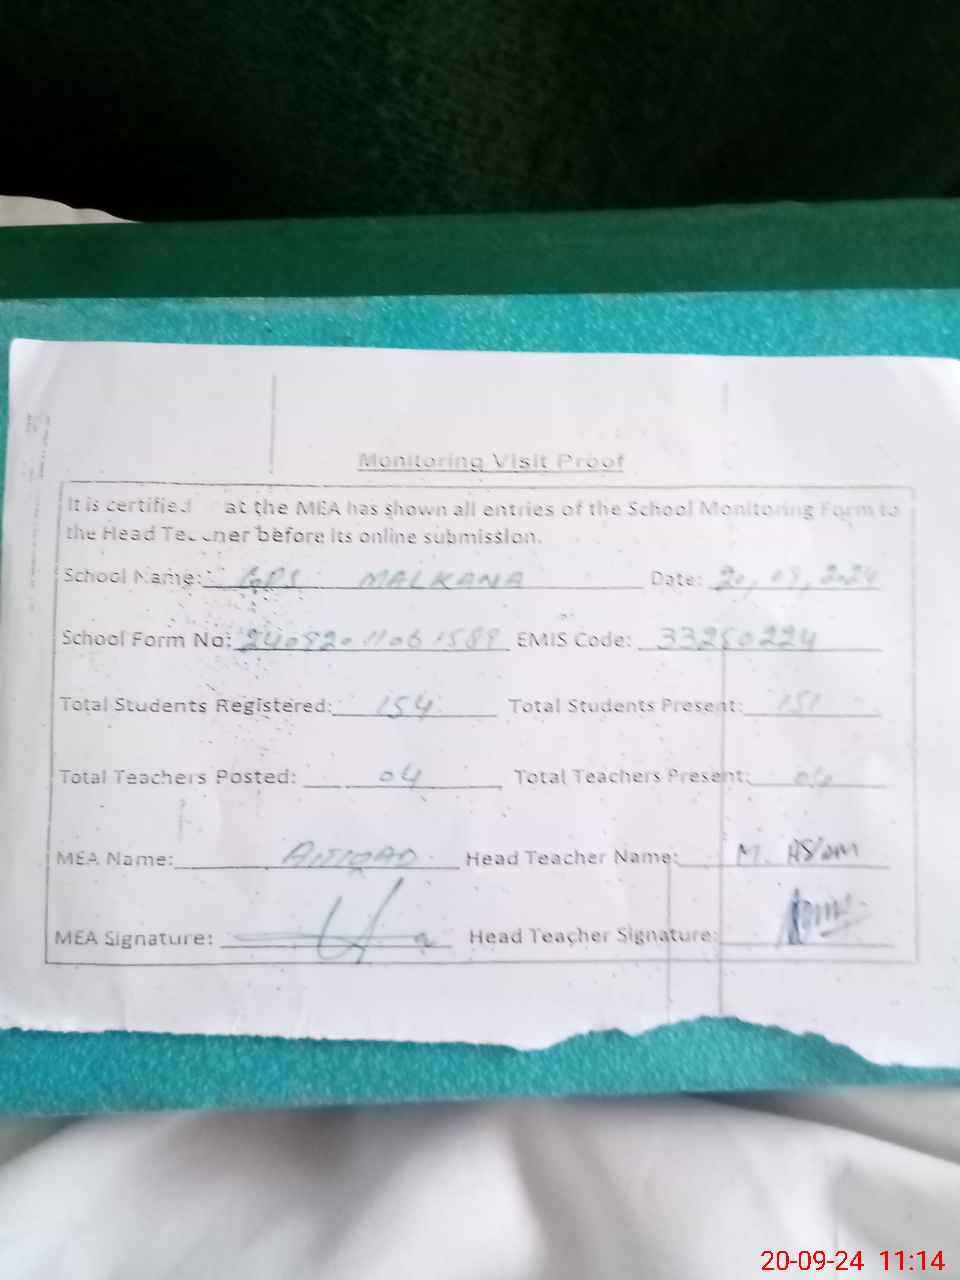 Monitoring Visit Proof
It is certified at the MEA has shown all entries of the School Monitoring Form to
the Head Teacher before its online submission.
School Name: GPS MALKANA Date: 20, 09, 2024
School Form No: 24092011061589 EMIS Code: 33250224
Total Students Registered: 154 Total Students Present: 151
Total Teachers Posted: 04 Total Teachers Present: 04
MEA Name: Head Teacher Name: M. ASlam
MEA Signature: Head Teacher Signature:
20-09-24 11:14